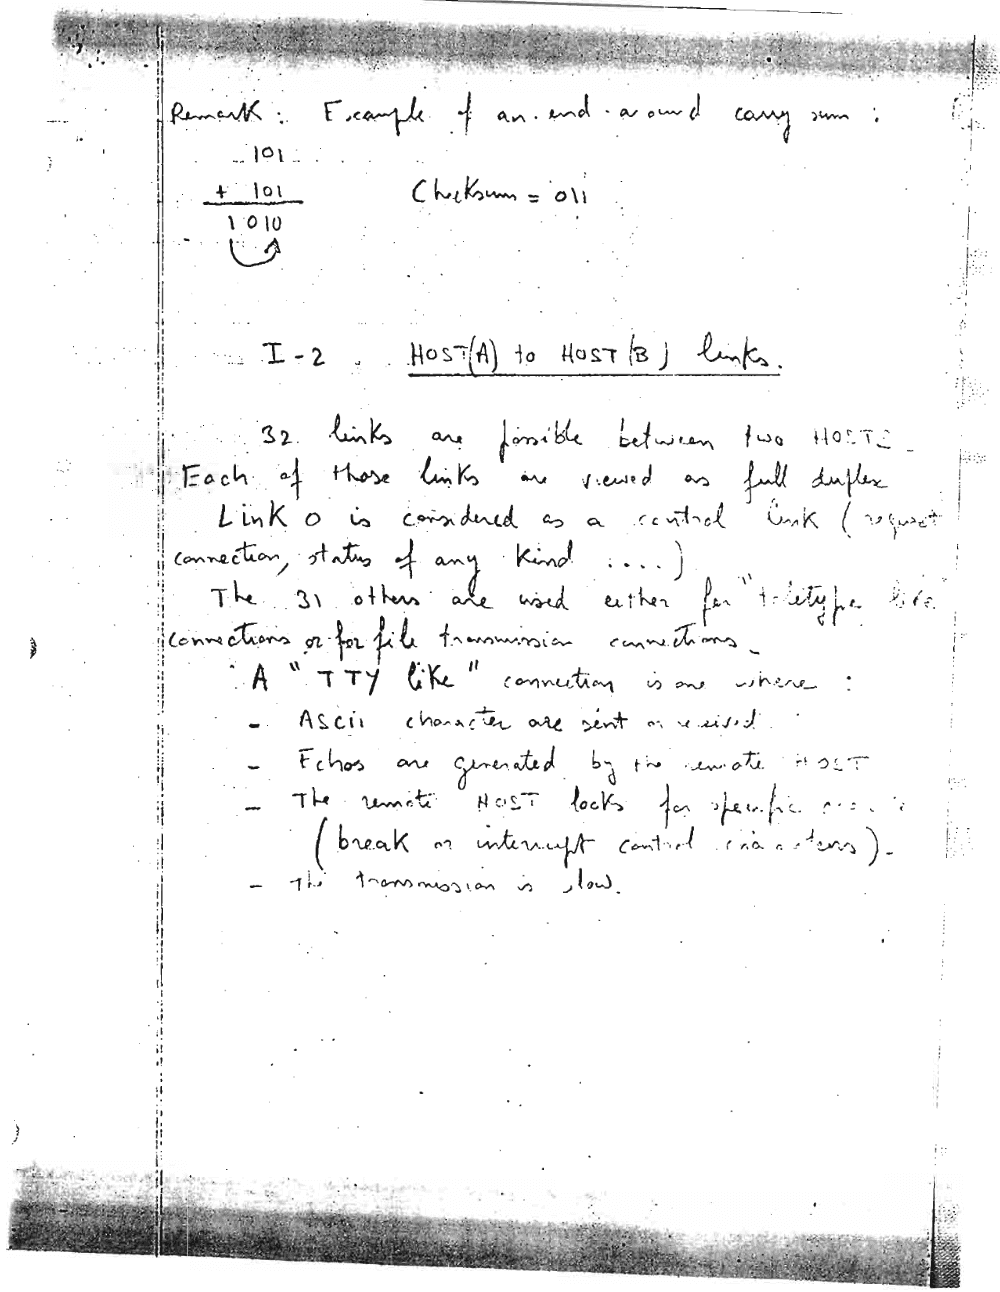 Remark : Example of an end-around carry sum :
101
+ 101 Checksum = 011
1010
I-2 HOST(A) to HOST(B) links.
32 links are possible between two HOSTS.
Each of those links are viewed as full duplex
Link 0 is considered as a control link (request
connection, status of any kind ....)
The 31 others are used either for "teletype like"
connections or for file transmission connections.
A "TTY like" connection is one where :
- ASCii character are sent or received
- Echos are generated by the remote HOST
- The remote HOST looks for specific
(break or interrupt control characters).
- The transmission is slow.